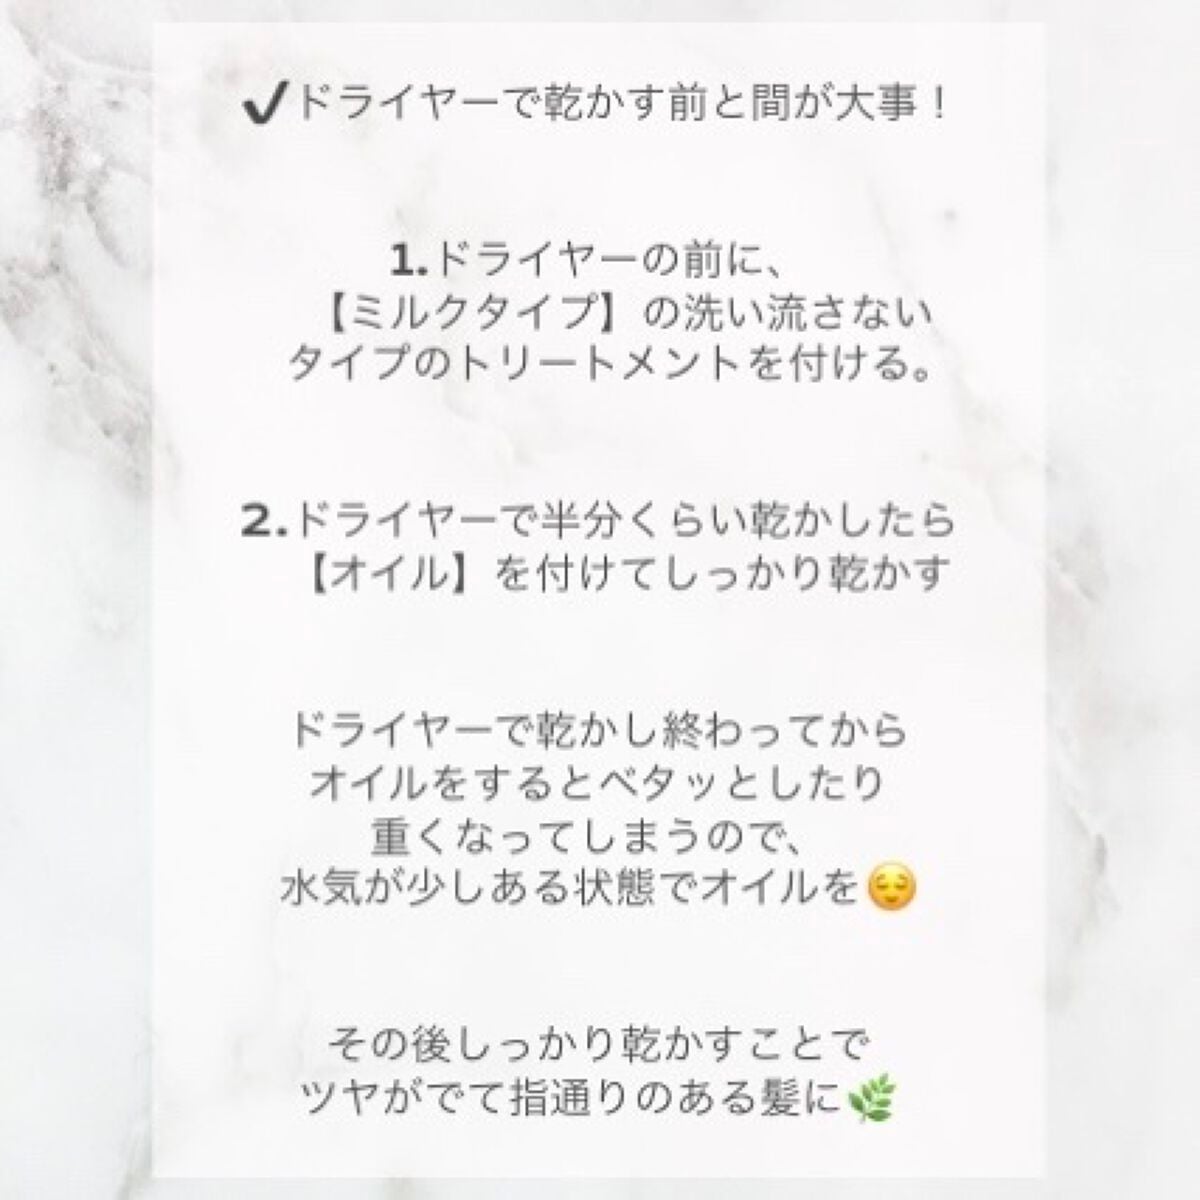 ✔ドライヤーで乾かす前と間が大事！
1.ドライヤーの前に、
【ミルクタイプ】の洗い流さない
タイプのトリートメントを付ける。
2.ドライヤーで半分くらい乾かしたら
【オイル】を付けてしっかり乾かす
ドライヤーで乾かし終わってから
オイルをするとベタッとしたり
重くなってしまうので、
水気が少しある状態でオイルを😌
その後しっかり乾かすことで
ツヤがでて指通りのある髪に🌿